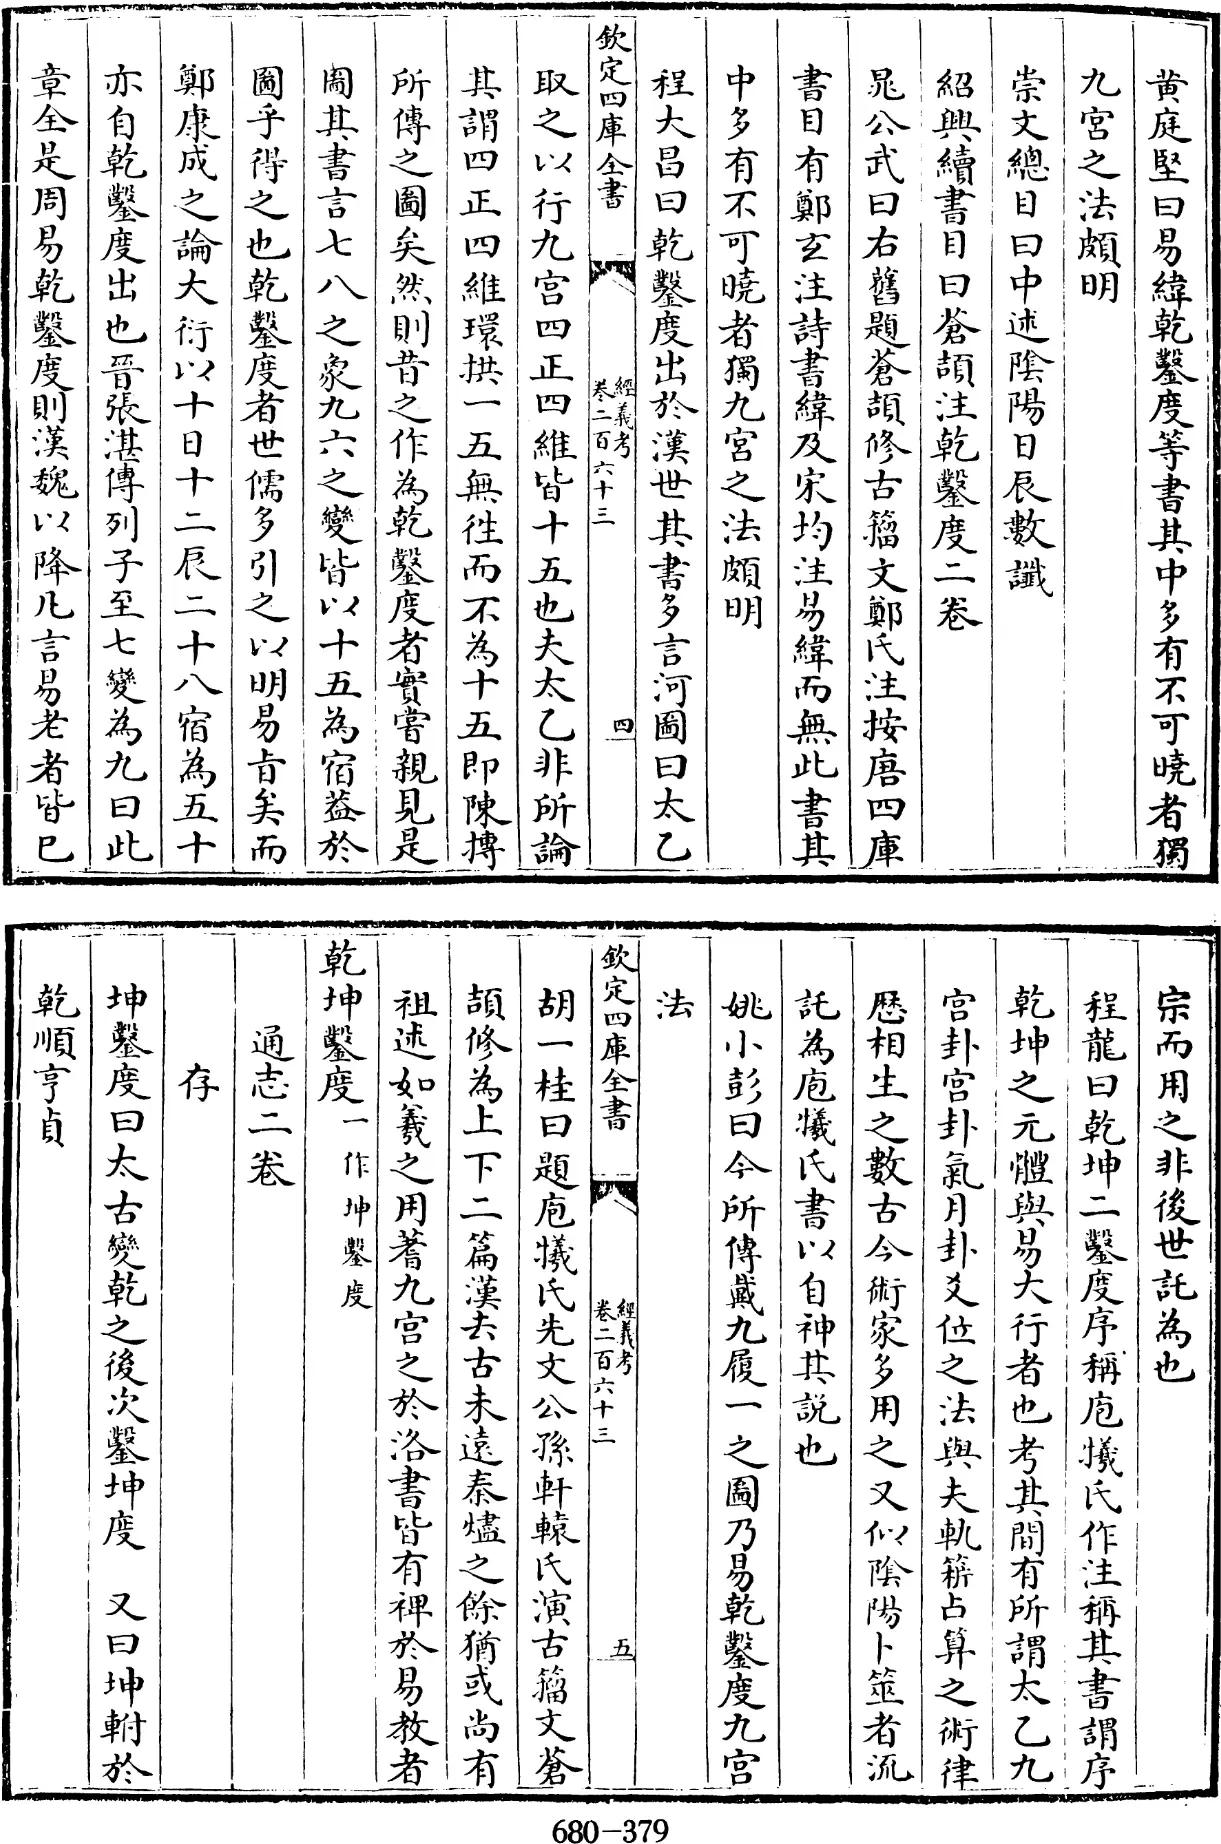 黄庭堅曰易緯乾鑿度等書其中多有不可曉者獨
九宮之法頗明
崇文總目曰中述陰陽日辰數讖
紹興續書目曰蒼頡注乾鑿度二卷
晁公武曰右舊題蒼頡修古籀文鄭氏注按唐四庫
書目有鄭玄注詩書緯及宋均注易緯而無此書其
中多有不可曉者獨九宮之法頗明
程大昌曰乾鑿度出於漢世其書多言河圖曰太乙
欽定四庫全書
經義考
卷二百六十三
四
取之以行九宮四正四維皆十五也夫太乙非所論
其謂四正四維環拱一五無徃而不為十五即陳摶
所傳之圖矣然則昔之作為乾鑿度者實嘗親見是
圖其書言七八之象九六之變皆以十五為宿葢於
圖乎得之也乾鑿度者世儒多引之以明易㫖矣而
鄭康成之論大衍以十日十二辰二十八宿為五十
亦自乾鑿度出也晉張湛傳列子至七變為九曰此
章全是周易乾鑿度則漢魏以降凡言易老者皆已
宗而用之非後世託為也
程龍曰乾坤二鑿度序稱庖犧氏作注稱其書謂序
乾坤之元體與易大行者也考其間有所謂太乙九
宮卦宮卦氣月卦爻位之法與夫軌䇮占算之術律
歷相生之數古今術家多用之又似陰陽卜筮者流
託為庖犧氏書以自神其説也
姚小彭曰今所傳戴九履一之圖乃易乾鑿度九宮
法
欽定四庫全書
經義考
卷二百六十三
五
胡一桂曰題庖犧氏先文公孫軒轅氏演古籀文蒼
頡修為上下二篇漢去古未遠秦燼之餘猶或尚有
祖述如羲之用蓍九宮之於洛書皆有裨於易教者
乾坤鑿度一作坤鑿度
通志二卷
存
坤鑿度曰太古變乾之後次鑿坤度　又曰坤軵於
乾順亨貞
680-379